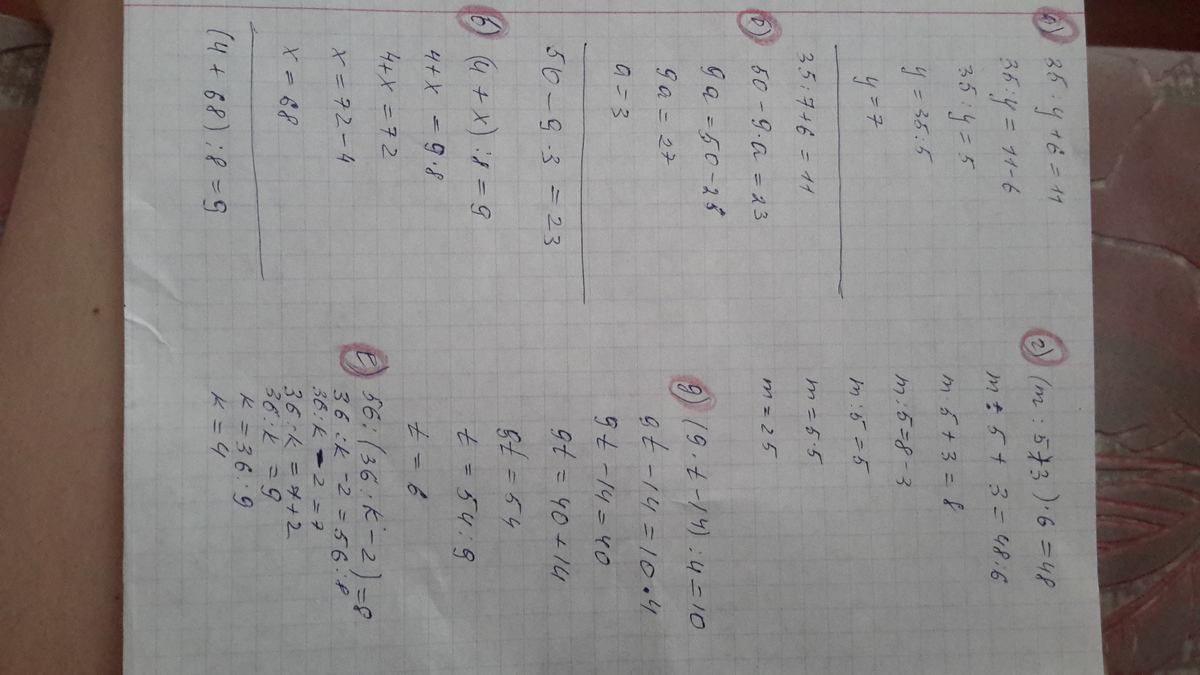 а) 35 : y + 6 = 11
35 : y = 11 - 6
35 : y = 5
y = 35 : 5
y = 7
35 : 7 + 6 = 11
б) 50 - 9 · a = 23
9a = 50 - 23
9a = 27
a = 3
50 - 9 · 3 = 23
в) (4 + x) : 8 = 9
4 + x = 9 · 8
4 + x = 72
x = 72 - 4
x = 68
(4 + 68) : 8 = 9
г) (m : 5 + 3) · 6 = 48
m : 5 + 3 = 48 : 6
m : 5 + 3 = 8
m : 5 = 8 - 3
m : 5 = 5
m = 5 · 5
m = 25
g) (9 · t - 14) : 4 = 10
9t - 14 = 10 · 4
9t - 14 = 40
9t = 40 + 14
9t = 54
t = 54 : 9
t = 6
Е) 56 : (36 : k - 2) = 8
36 : k - 2 = 56 : 8
36 : k - 2 = 7
36 : k = 7 + 2
36 : k = 9
k = 36 : 9
k = 4